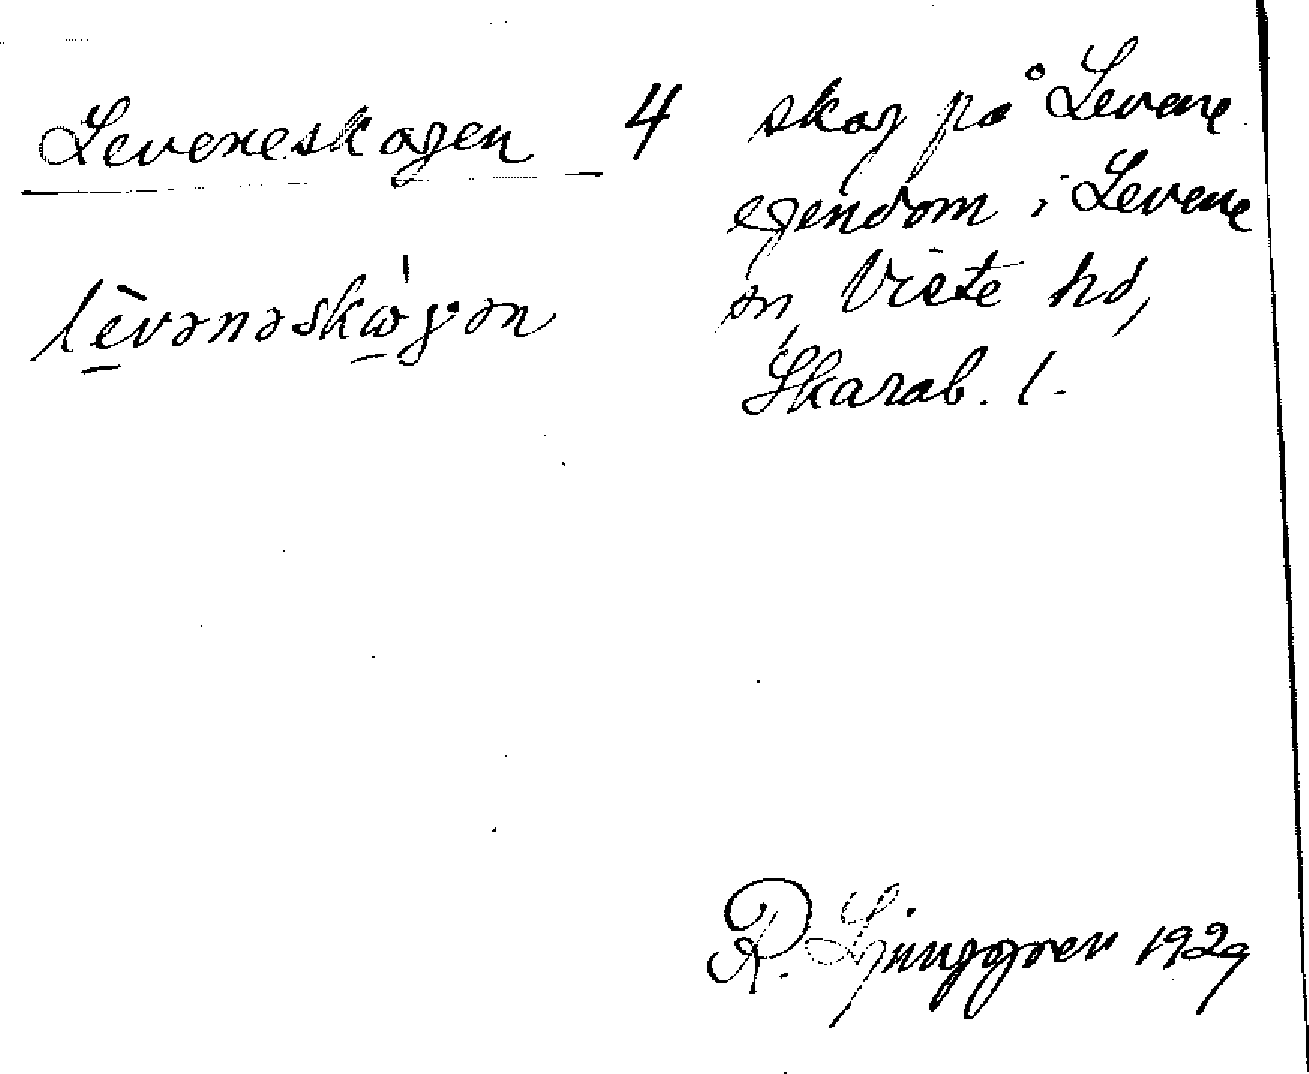 Leveneskogen 4
lèvənəskωgən
skog på Levene
egendom i Levene
sn, Viste hd,
Skarab. l.
R. Ljunggren 1929